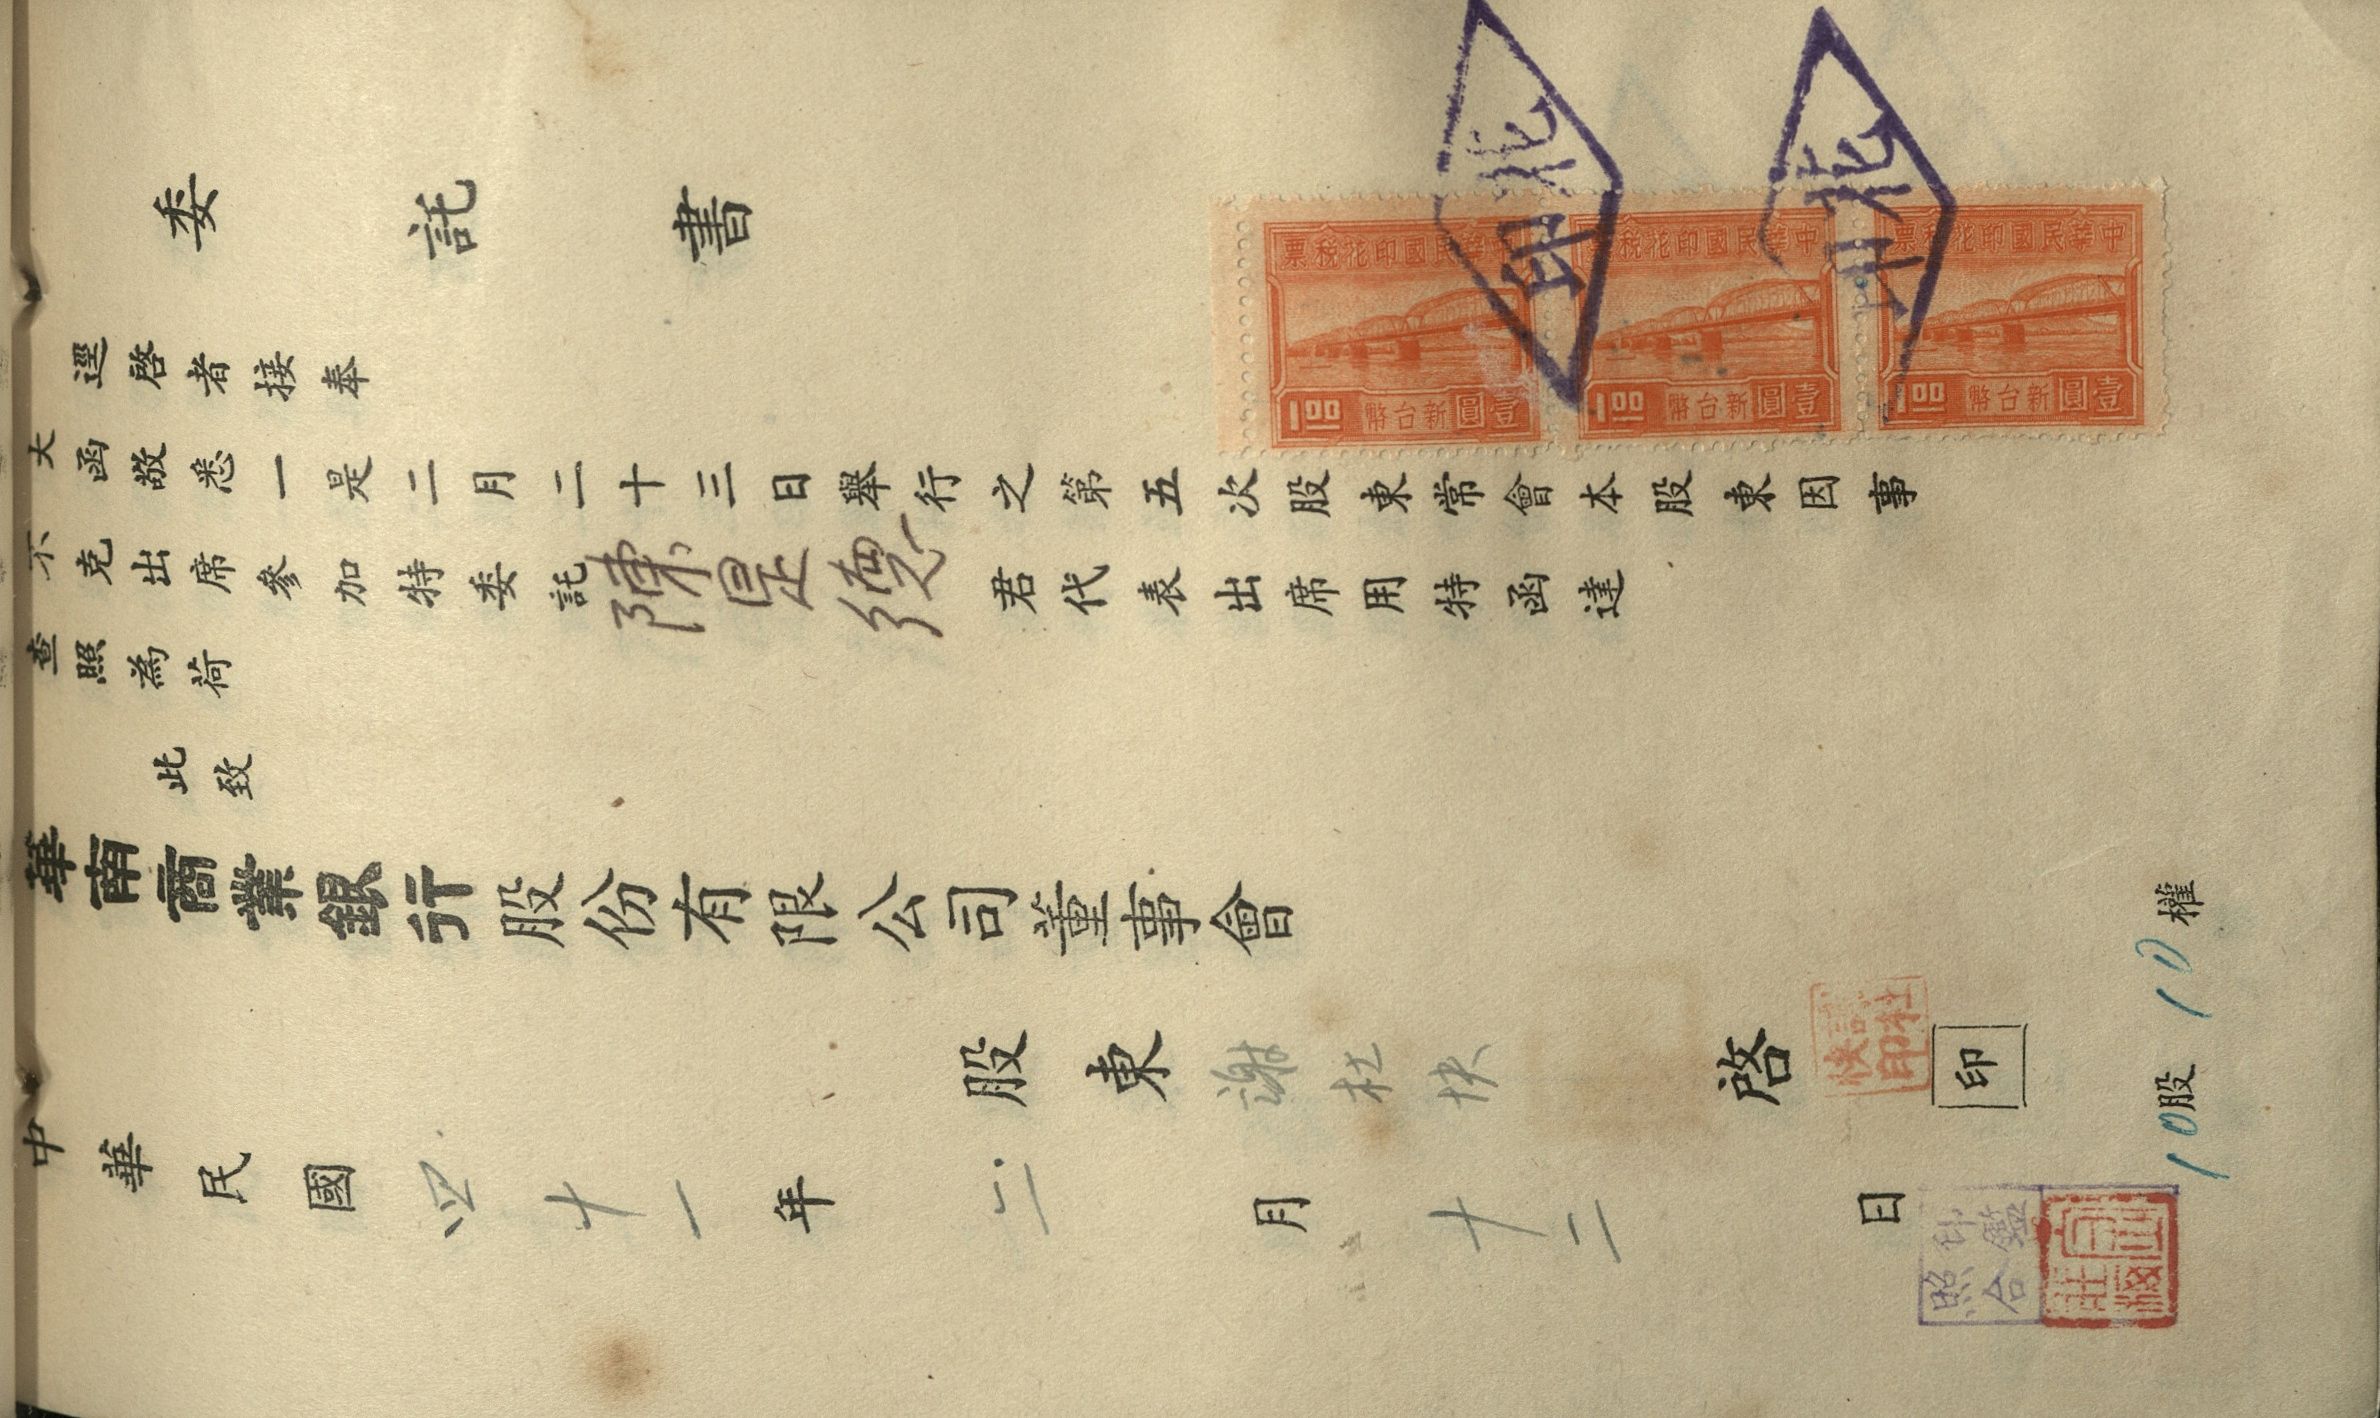 委託書
逕啓者接奉
大函敬悉一是二月二十三日舉行之第五次股東常會本股東因事
不克出席參加特委託陳是德君代表出席用特函達
查照為荷
此致
華南商業銀行股份有限公司董事會
股東 謝杜快 啓 印
中華民國四十一年二月十二日
10股 10權
中華民國印花稅票
壹圓 新台幣 1.00
中華民國印花稅票
壹圓 新台幣 1.00
中華民國印花稅票
壹圓 新台幣 1.00
北印
北印
印鑑照合